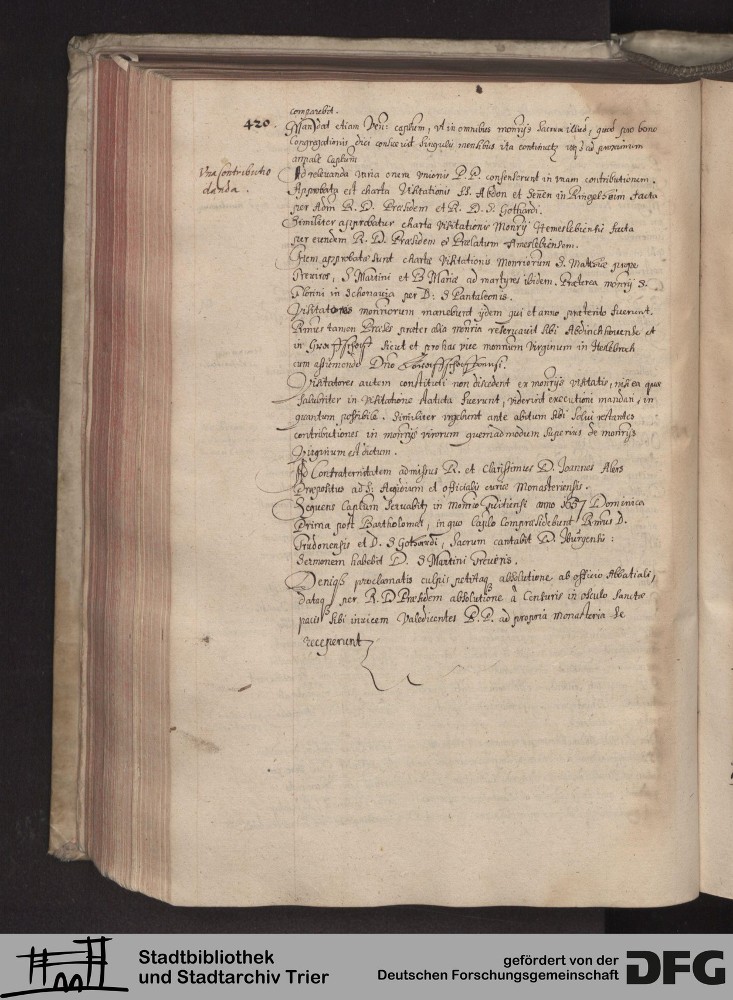 comparebit.
420.
Mandat etiam Ven: caplum, vt in omnibus monrijs sacrum illud, quod pro bono
Congregationis dici consueuit singulis mensibus ita continuetr vsq ad proximum
annale Caplum
Vna Contributio
danda.
Ad releuanda varia onera vnionis P.P. consenserunt in vnam contributionem.
Approbata est charta Visitationis SS. Abdon et Sennen in Ringelheim facta
per Adm R. D. Praesidem et R. D. S. Gothardi.
Similiter approbatur charta visitationis Monrij Hemeslebiensis facta
per eundem R. D. Praesidem & Praelatum Ameslebiensem.
Item approbatae sunt chartae visitationis Monriorum S. Mathiae prope
Treuiros, S Martini et B Mariae ad martyres ibidem. Praeterea monrij S.
Florini in Schonauia per D: S Pantaleonis.
Visitatores monriorum manebunt ijdem qui et anno praeterito fuerunt.
Rmus tamen Praeses praeter alia monria reseruauit sibi Abdinckhouense et
in sicut et pro hac vice monrium Virginum in Herlebroch
cum assumendo Dno
Visitatores autem constituti non discedent ex monrijs visitatis, nisi ea quae
salubriter in visitatione statuta fuerunt, viderint executioni mandari, in
quantum possibile. Similiter vrgebunt ante abitum sibi solui restantes
contributiones in monrijs virorum quemadmodum superius de monrijs
Virginum est dictum.
Ad Confraternitatem admissus R. et Clarissimus D. Joannes Alers
Praepositus ad S. Aegidium et officialis curiae Monasteriensis.
Sequens Caplum seruabitr in Monrio Tuitiensi anno 1637 Dominica
Prima post Bartholomaei, in quo Caplo Compraesidebunt Rmus D.
Trudonensis et D. S Gothardi, Sacrum cantabit D. Iburgensis:
Sermonem habebit D. S Martini Treueris.
Deniqs proclamatis culpis petitaq absolutione ab officio Abbatiali,
dataq per R. D Praesidem absolutione à Censuris in osculo sanctae
pacis sibi inuicem Valedicentes P.P. ad propria monasteria se
receperunt
Stadtbibliothek
und Stadtarchiv Trier
gefördert von der
Deutschen Forschungsgemeinschaft
DFG